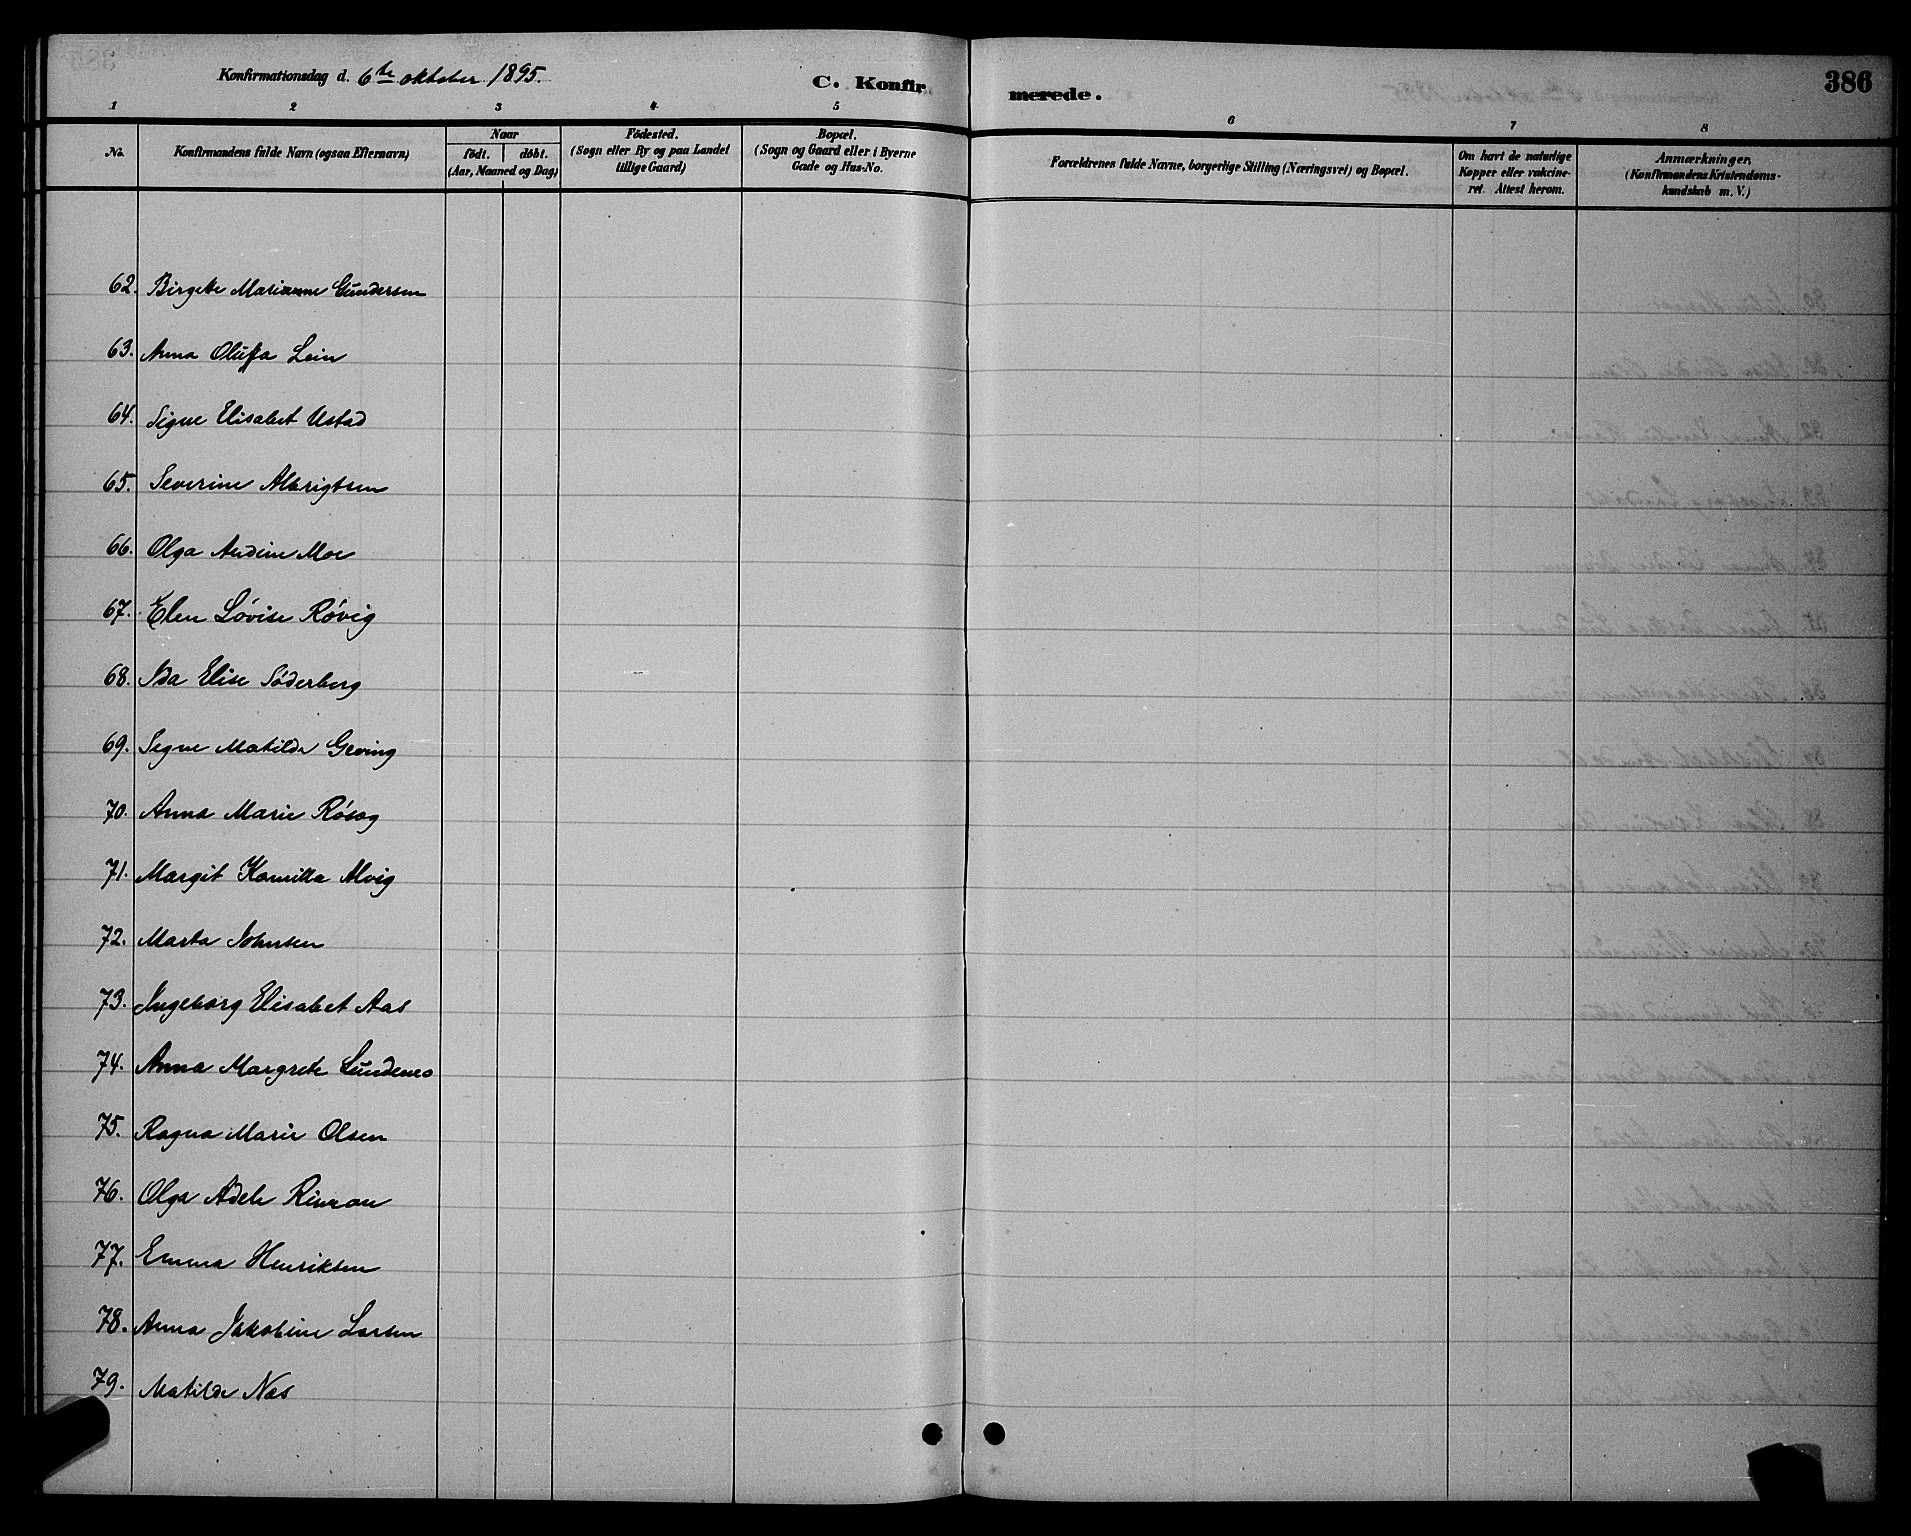 Konfirmationsdag d. 6te oktober 1895.
C. Konfirmerede.
386
1 2 3 4 5 6 7 8
No.
Konfirmandens fulde Navn (ogsaa Efternavn)
Naar
født. døbt.
(Aar, Maaned og Dag)
Fødested.
(Sogn eller By og paa Landet
tillige Gaard)
Bopæl.
(Sogn og Gaard eller i Byerne
Gade og Hus-No.
Forældrenes fulde Navne, borgerlige Stilling (Næringsvei) og Bopæl.
Om havt de naturlige
Kopper eller vakcine-
ret. Attest herom.
Anmærkninger.
(Konfirmandens Kristendoms-
kundskab m. V.)
62. Birgete Marianne Gundersen
63. Anna Oluffa Lein
64. Signe Elisabet Ustad
65. Severine Albrigtsen
66. Olga Andine Moe
67. Elen Lovise Røvig
68. Ida Elise Søderberg
69. Signe Matilde Greving
70. Anna Marie Røsøg
71. Margit Kamilla Alvig
72. Marta Johnsen
73. Ingeborg Elisabet Aas
74. Anna Margrete Sundenes
75. Ragna Marie Olsen
76. Olga Adele
77. Emma Henriksen
78. Anna Jakobine Larsen
79. Matilde Næs